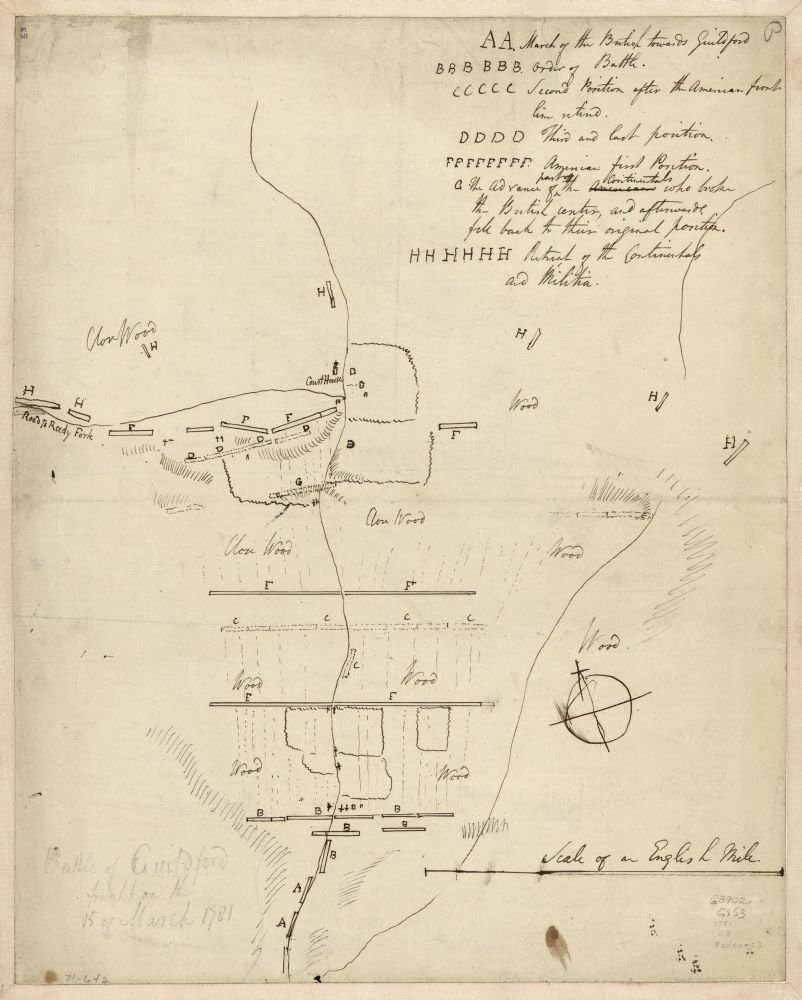 53
AA. March of the British towards Guildford
BBB BBB. Order of Battle.
CCCCC Second Position after the American front
line retired.
DDDD Third and last position.
FFFFFFFF. American first Position.
G the Advance part of the Americans Continentals who broke
the British center, and afterwards
fell back to their original position.
HH HHHH Retreat of the Continentals
and Militia.
H
Close Wood
H
H
Court House
D
D
Wood
H
H
H
H
Road to Reedy Fork
F
F
F
F
D
D
D
D
F
G
Close Wood
Close Wood
Wood
F
F
C
C
C
C
C
Wood
Wood
Wood
F
F
Wood
Wood
B
B
B
B
B
B
A
A
Scale of an English Mile.
Battle of Guildford
fought on the
15 of March 1781
G3902
G853
1781
71-642